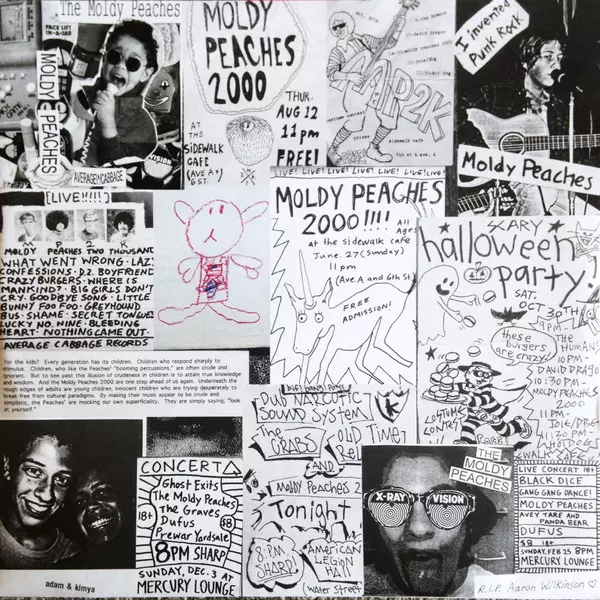 The Moldy Peaches
FACE LIFT
IN-A-JAR
MOLDY PEACHES
AVERAGE CABBAGE
MOLDY
PEACHES
2000
THUR.
AUG 12
11 pm
FREE!
AT
THE
SIDEWALK
CAFE
(AVE A +
6 ST.
MP2K
sidewalk cafe
I invented
Punk Rock
Moldy Peaches
[LIVE!!!!!]
MOLDY PEACHES TWO THOUSAND
WHAT WENT WRONG · LAZY
CONFESSIONS · D.2. BOYFRIEND
CRAZY BURGERS · WHERE IS
MANKIND? · BIG GIRLS DON'T
CRY · GOODBYE SONG · LITTLE
BUNNY FOO FOO · GREYHOUND
BUS · SHAME · SECRET TONGUES
LUCKY NO. NINE · BLEEDING
HEART · NOTHING CAME OUT ·
AVERAGE CABBAGE RECORDS
For the kids? Every generation has its children. Children who respond sharply to
stimulus. Children, who like the Peaches' "booming percussions," are often crude and
ignorant. But to see past this illusion of crudeness is to attain true knowledge
and wisdom. And the Moldy Peaches 2000 are one step ahead of us again. Underneath the
rough edges of adults are young children, innocent children who are trying desperately to
break free from cultural paradigms. By making their music appear to be crude and
simplistic, the Peaches' are mocking our own superficiality. They are simply saying, "look
at yourself."
LIVE! LIVE! LIVE! LIVE! LIVE! LIVE! LIVE!
MOLDY PEACHES
2000!!!!
All
Ages
at the sidewalk cafe
June 27 (Sunday)
11 pm
(Ave A and 6th St)
FREE
ADMISSION!
SCARY
halloween
party!
SAT.
OCT 30TH
9PM-
THE
HUMANS
10PM-
DAVID DRAGO
10:30 PM-
MOLDY
PEACHES
2000
11PM-
11:30PM-
these
burgers
are crazy!
COSTUME
CONTEST
ROBBLE
DUB NARCOTIC
SOUND SYSTEM
The CRABS
OLD TIME
AND
Moldy Peaches 2
Tonight
8 PM
SHARP!
American
Legion
Hall
(Water Street
adam & kimya
CONCERT
Ghost Exits
The Moldy Peaches
The Graves
Dufus
Prewar Yardsale
18+
$8
8PM SHARP
SUNDAY, DEC. 3 AT
MERCURY LOUNGE
THE
MOLDY
PEACHES
X-RAY VISION
LIVE CONCERT 18+
BLACK DICE
GANG GANG DANCE!
MOLDY PEACHES
AVEY TARE AND
PANDA BEAR
DUFUS
$8 18+
SUNDAY, FEB 25 8PM
MERCURY LOUNGE
R.I.P. Aaron Wilkinson ♡